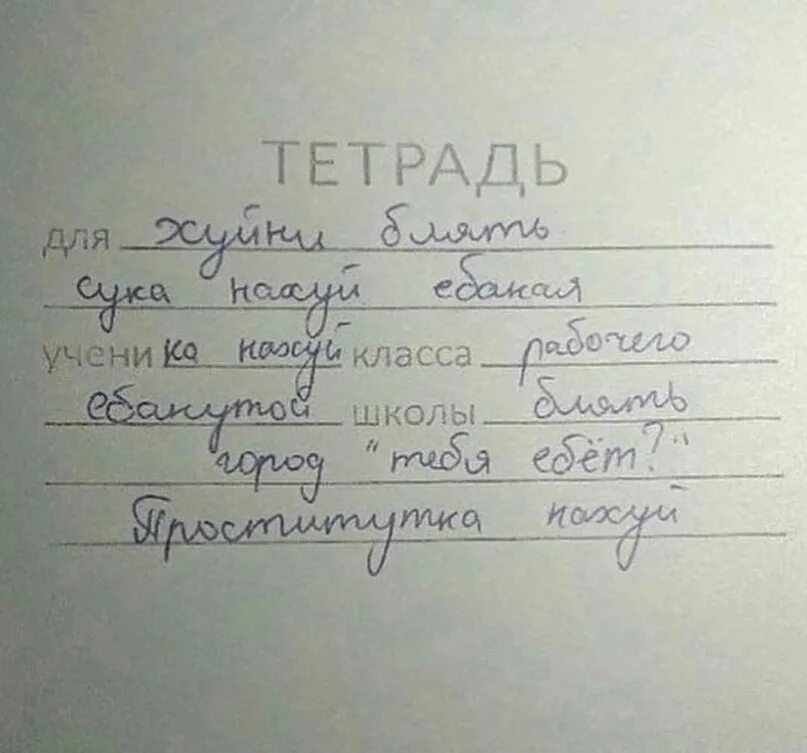 ТЕТРАДЬ
для хуйни блять
сука нахуй ебаная
ученика нахуй класса рабочего
ебанутой школы блять
город "тебя ебёт?"
Проститутка нахуй